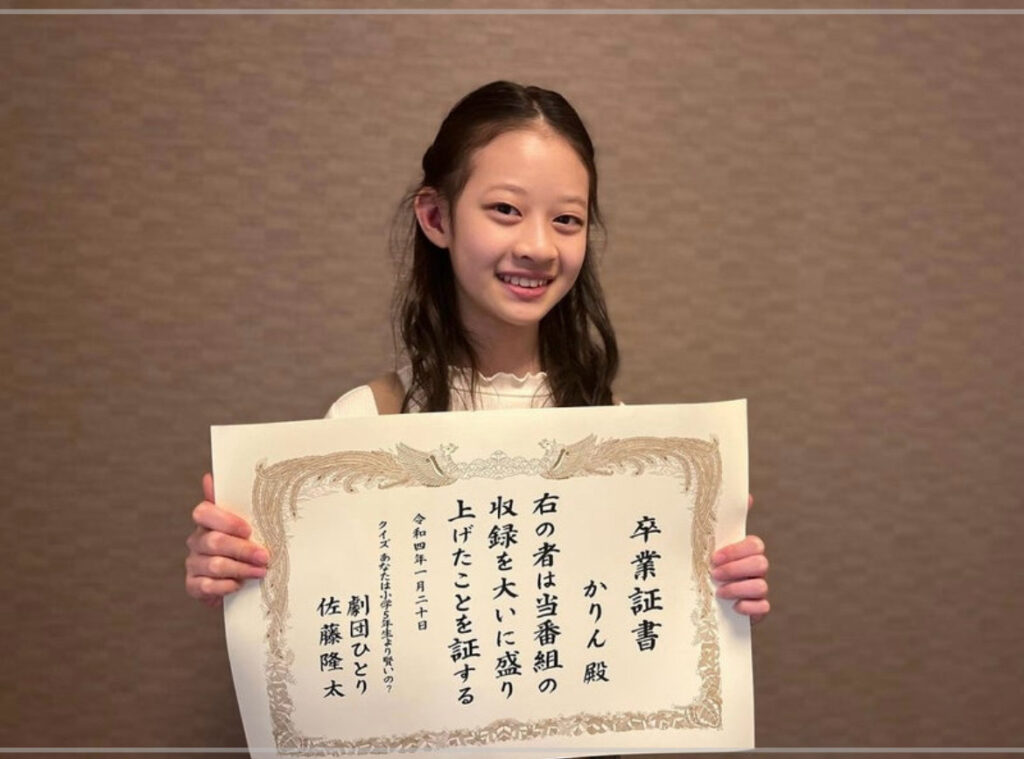 卒業証書
かりん 殿
右の者は当番組の
収録を大いに盛り
上げたことを証する
令和四年一月二十日
クイズ あなたは小学5年生より賢いの?
劇団ひとり
佐藤隆太